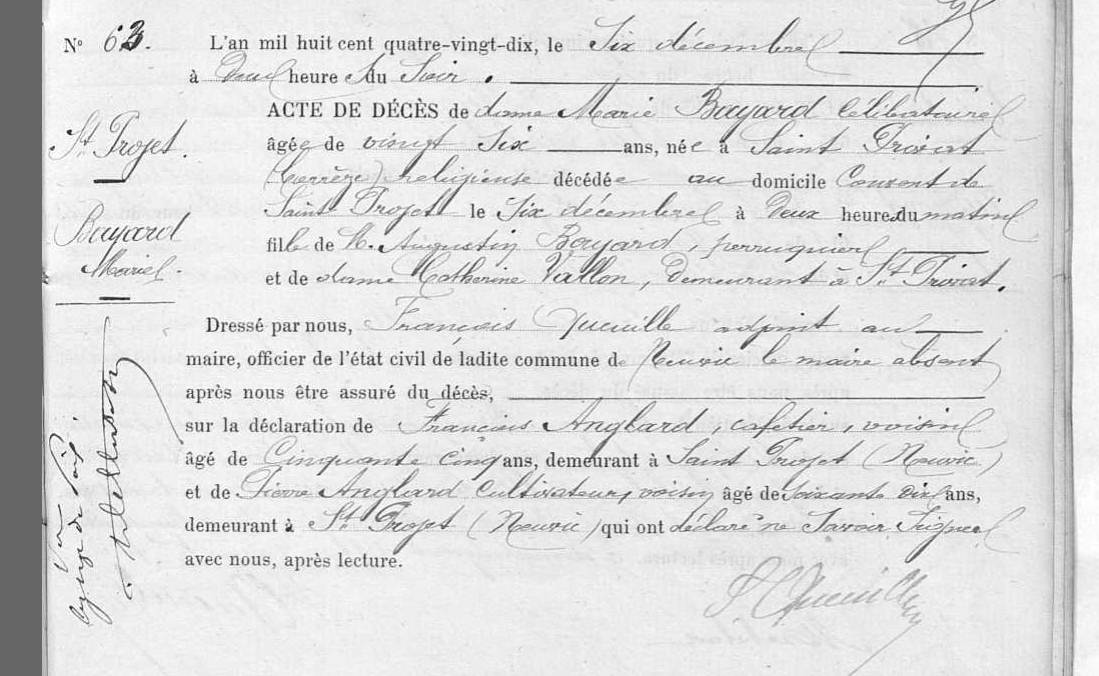 N° 63.
L'an mil huit cent quatre-vingt-dix, le Six décembre
à Deux heures du Soir.
St Projet.
Bayard
Marie
ACTE DE DÉCÈS de dame Marie Bayard Célibataire
âgée de vingt Six ans, née à Saint Privat
(Corrèze) religieuse décédée au domicile Couvent de
Saint Projet le Six décembre à Deux heures du matin
fille de M. Augustin Bayard, perruquier
et de dame Catherine Vallon, Demeurant à St Privat.
Dressé par nous, François Queuille adjoint au
maire, officier de l'état civil de ladite commune de Neuvic le maire absent
après nous être assuré du décès,
sur la déclaration de François Anglard, cafetier, voisin
âgé de Cinquante cinq ans, demeurant à Saint Projet (Neuvic)
et de Pierre Anglard Cultivateur, voisin âgé de Soixante dix ans,
demeurant à St Projet (Neuvic) qui ont déclaré ne Savoir Signer
avec nous, après lecture.
Queuille